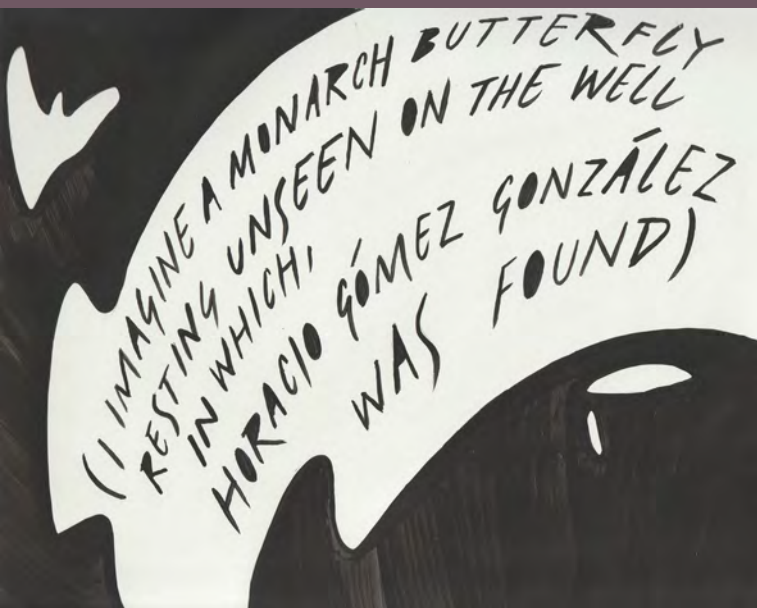 (I IMAGINE A MONARCH BUTTERFLY
RESTING UNSEEN ON THE WELL
IN WHICH,
HORACIO GÓMEZ GONZÁLEZ
WAS FOUND)